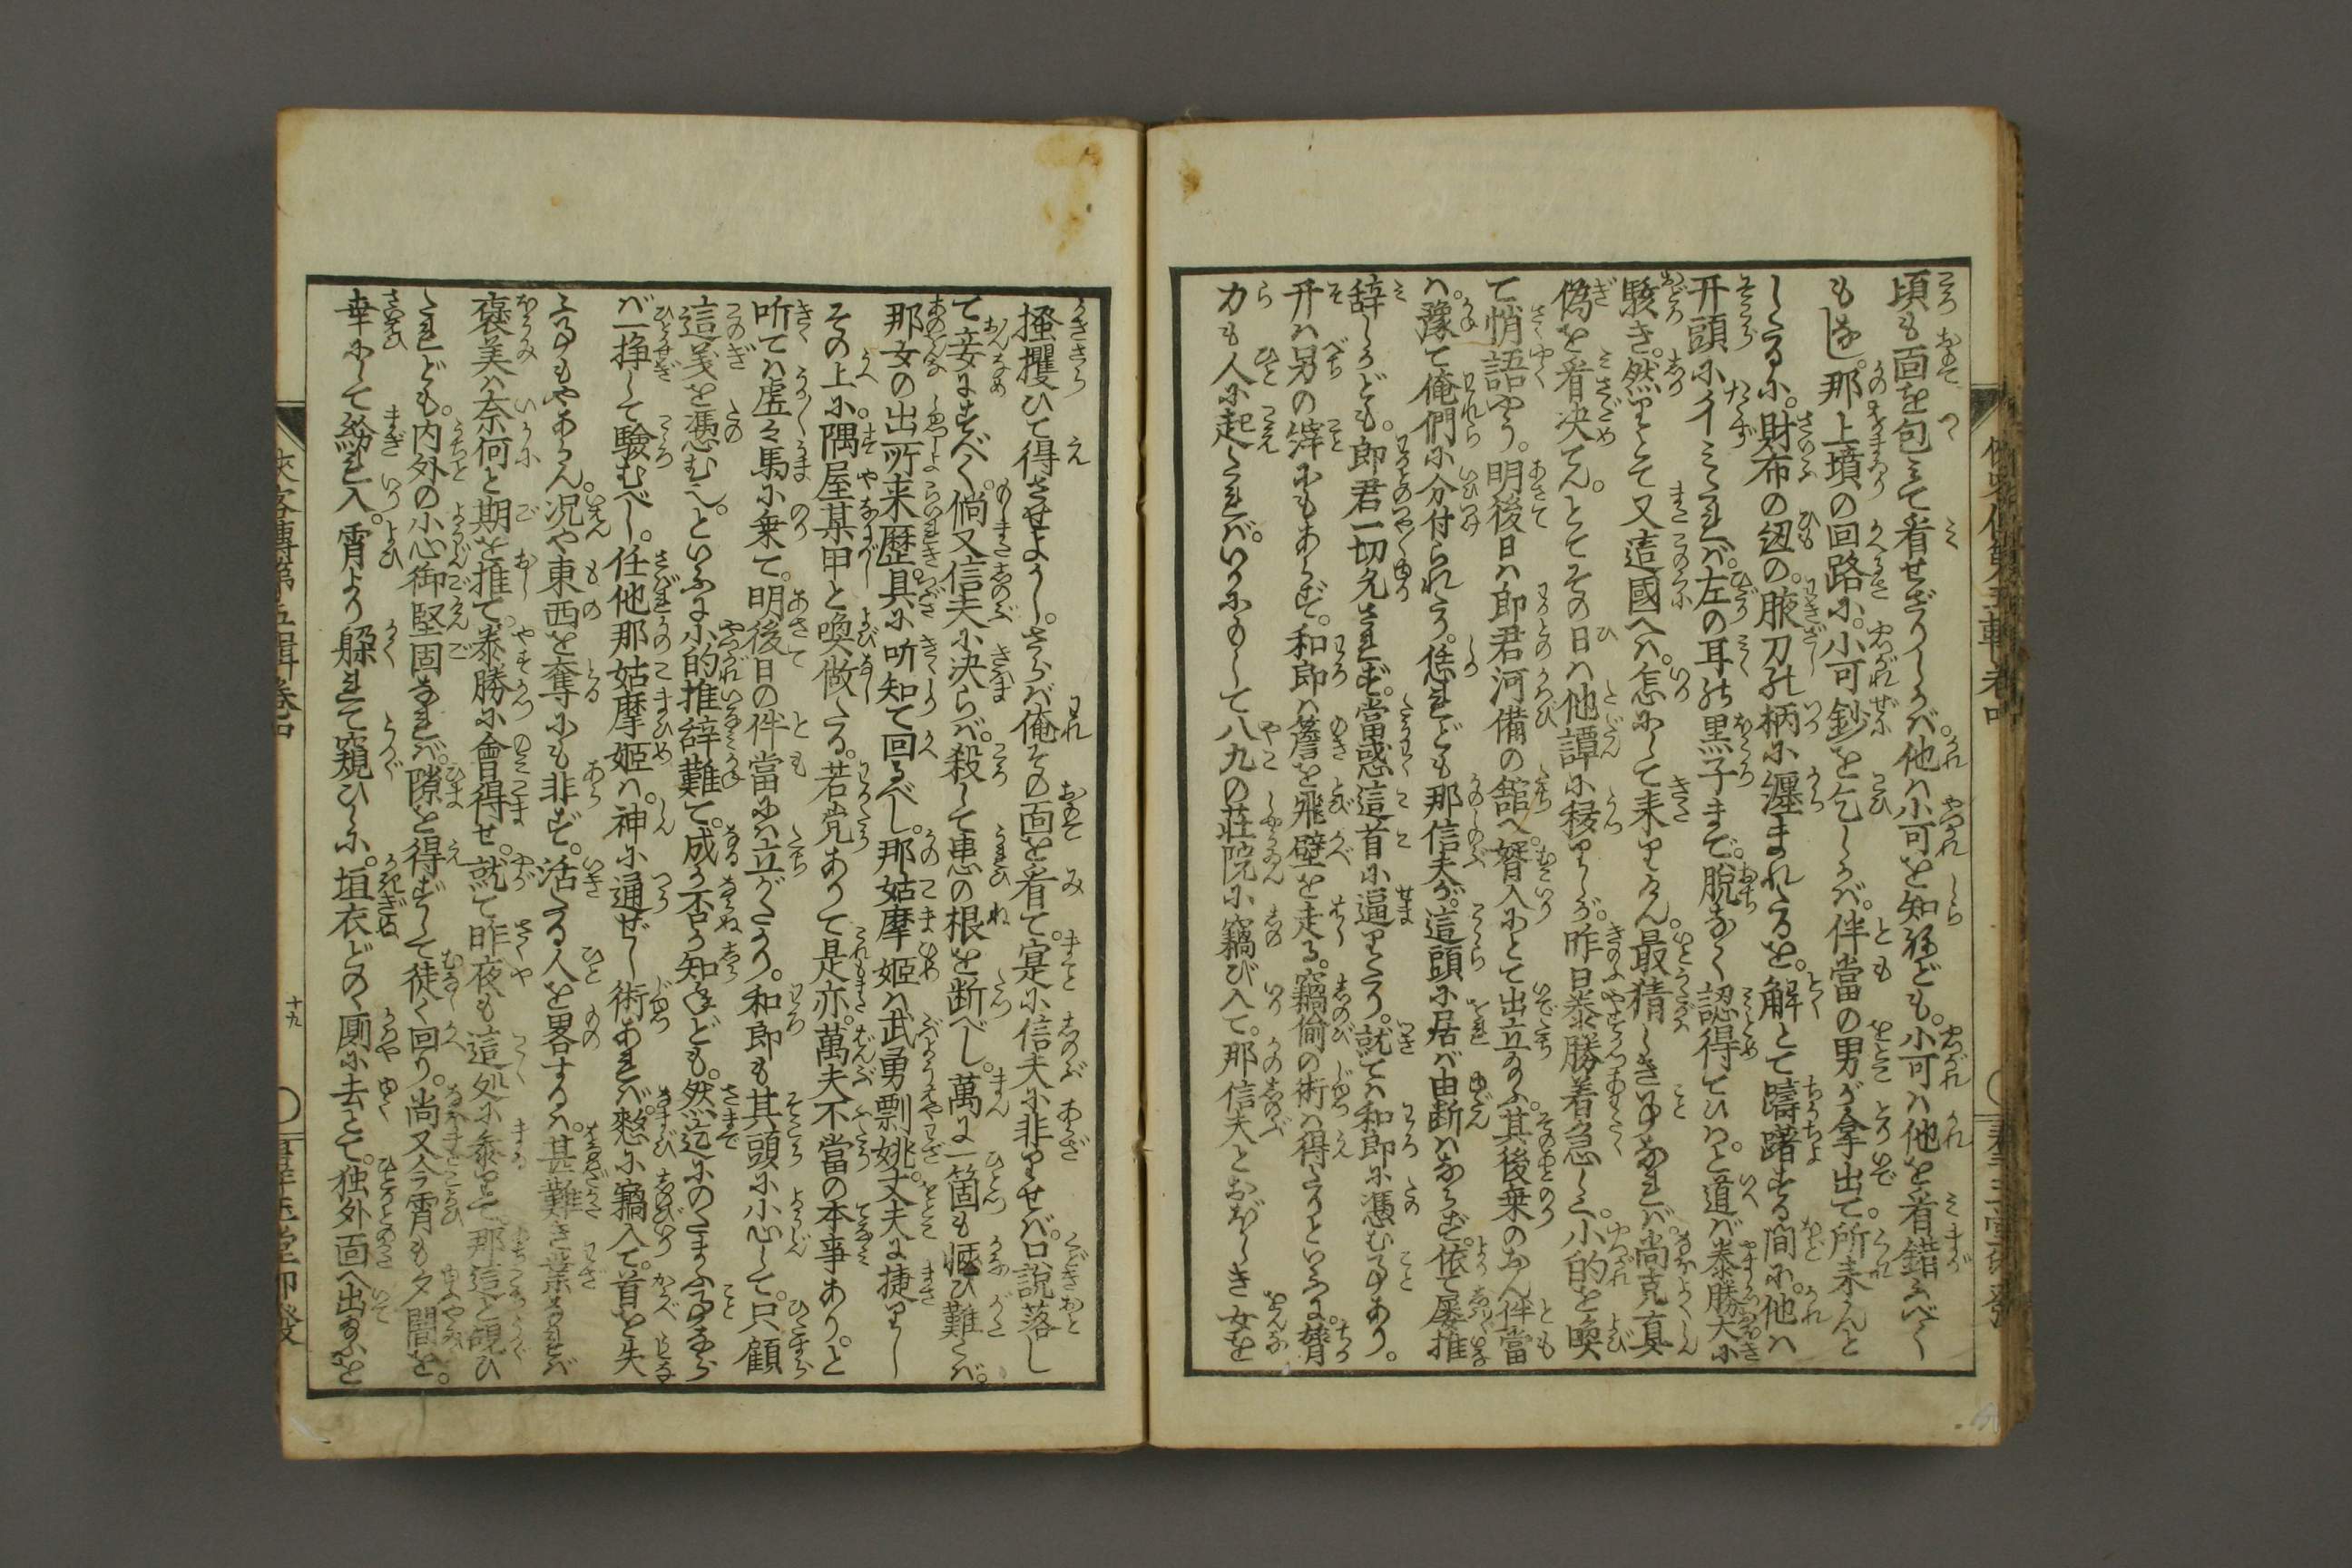 頃も面を包みて看せざりしかば。他は小可を知ねども。小可は他を看錯ふべく
もあらじ。那上墳の回路に。小可鈔を乞しかば。伴當の男が拿出て。所来んと
しつるに。財布の紐の。腋刀の柄に纏まれたるを。解とて躊躇する間に。他は
开頭に彳みたれば。左の耳の黒子まで。脱なく認得てひき。と道ば泰勝大に
駭き。然りとて又這國へは。怎にして来りけん。最猜しき事なれば。尚克真
偽を看決てん。とてその日は他譚に移りしが。昨日泰勝着急しく。小的を喚
て悄語やう。明後日は郎君河備の舘へ。婿入にとて出立給ふ。其後乗のおん伴當
は。豫て俺們に分付られたり。恁れども那信夫が。這頭に居ば由断はならず。依て屡推
辞しかども。郎君一切允されず。當惑這首に逼りたり。就ては和郎に憑む事あり。
开は別の縡にもあらず。和郎は簷を飛壁を走る。竊偷の術は得たりといふに。膂
力も人に起たれば。いかにもして八九の莊院に竊び入て。那信夫とおぼしき女を
搔攫ひて得させよかし。さらば俺その面を看て。寔に信夫に非りせば。口説落し
て妾にすべく。倘又信夫に決らば。殺して患の根を断べし。萬に一箇も愜ひ難くば。
那女の出所来歴。具に听知て回るべし。那姑摩姫は武勇剽姚。丈夫に捷りし
その上に。隅屋某甲と喚做たる。若党ありて是亦。萬夫不當の本事あり。と
听ては虚々馬に乗て。明後日の伴當には立がたかり。和郎も其頭に小心して。只顧
這義を憑むへ。といふに小的推辞難て。成か否か知ねども。然迄にのたまふ事ならば
一挣して驗むべし。任他那姑摩姫は。神に通ぜし術あれば。憖に竊入て。首を失
ふ事もやあらん。況や東西を奪にも非ず。活たる人を畧するは。甚難き業なれば
褒美は奈何と期を推て。泰勝に會得せ。就て昨夜も這処に参りて。那這と覘ひ
たれども。内外の小心御堅固なれば。隙を得ずして徒く回り。尚又今宵も夕闇を。
幸にして紛れ入。宵より躱れて窺ひしに。垣衣どのゝ厠に去とて。独外面へ出給ふを
十九